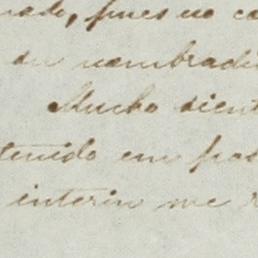 nado, pues no co
su nombradi
Mucho sient
tenido em pas
interin me r